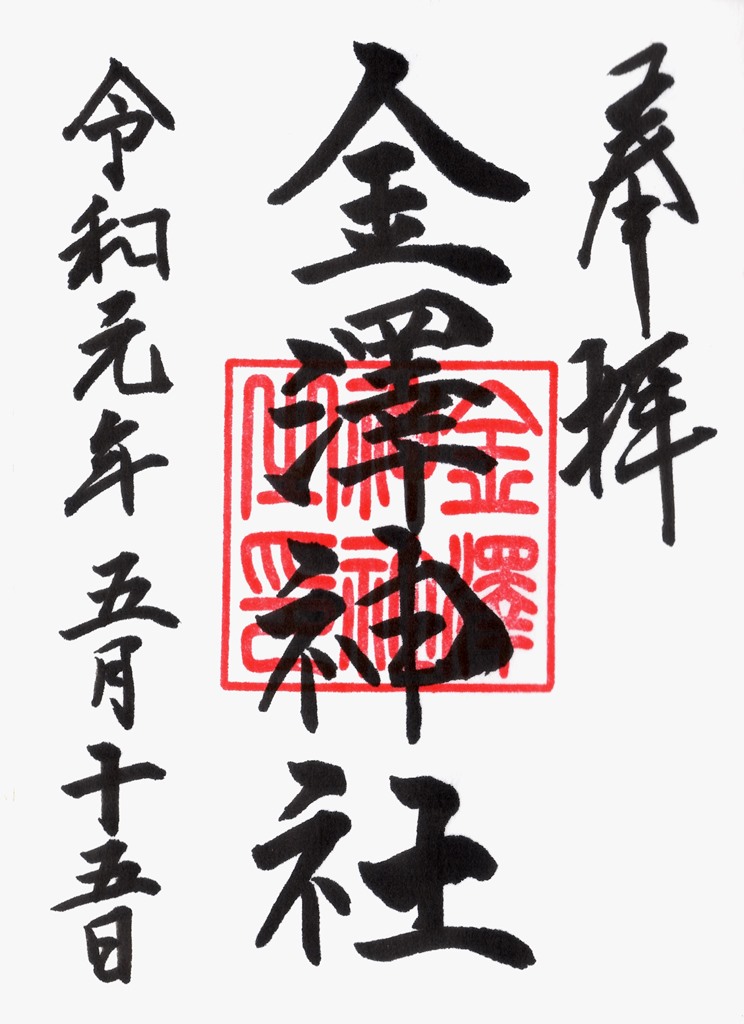 奉拝
金澤神社
金澤神社之印
令和元年五月十五日